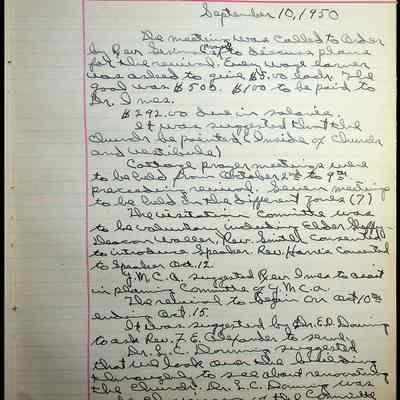 September 10, 1950
The meeting was called to order
by Rev. to discuss plans
for the revival. Every wage earner
was asked to give $5.00 each. The
goal was $500. $100 to be paid to
Dr. Imes.
$292.00 due in salaries.
It was suggested that the
church be painted (Inside of Church
and vestibule)
Cottage prayer meetings were
to be held from October 2nd to 9th
preceeding revival. Seven meetings
to be held in the different zones (7)
The visitation Committe was
to be voluntary including Elder
Deacon Waller, Rev. Smith consented
to introduce speaker. Rev. Harris consented
to speaker Oct. 12
Y.M.C.A. suggested Rev Imes to assist
in planning Committe of Y.M.C.a.
The revival to begin on Oct 10th
ending Oct. 15.
It was suggested by Dr. E.D. Downing
to ask Rev. F. E. Alexander to send.
Dr. L.C. Downing suggested
that we look over the building
thoroughly to see about renovating
the church. Dr. L.C. Downing was
the Committe